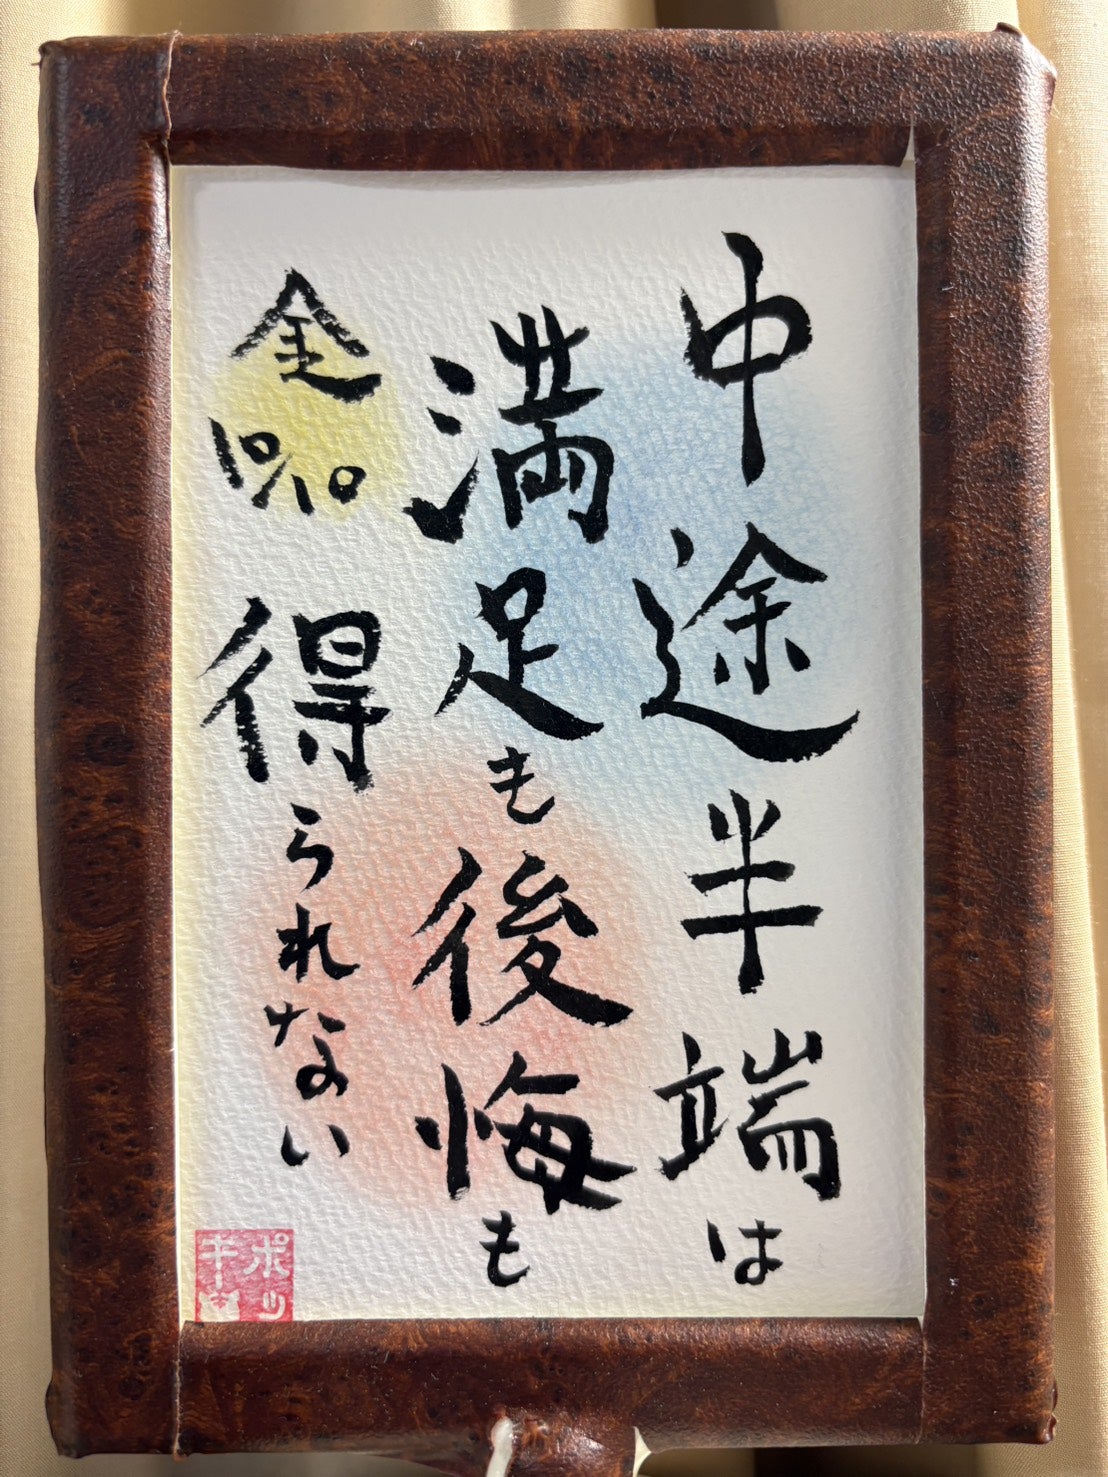 中途半端は
満足も後悔も
得られない
ポッ
キー